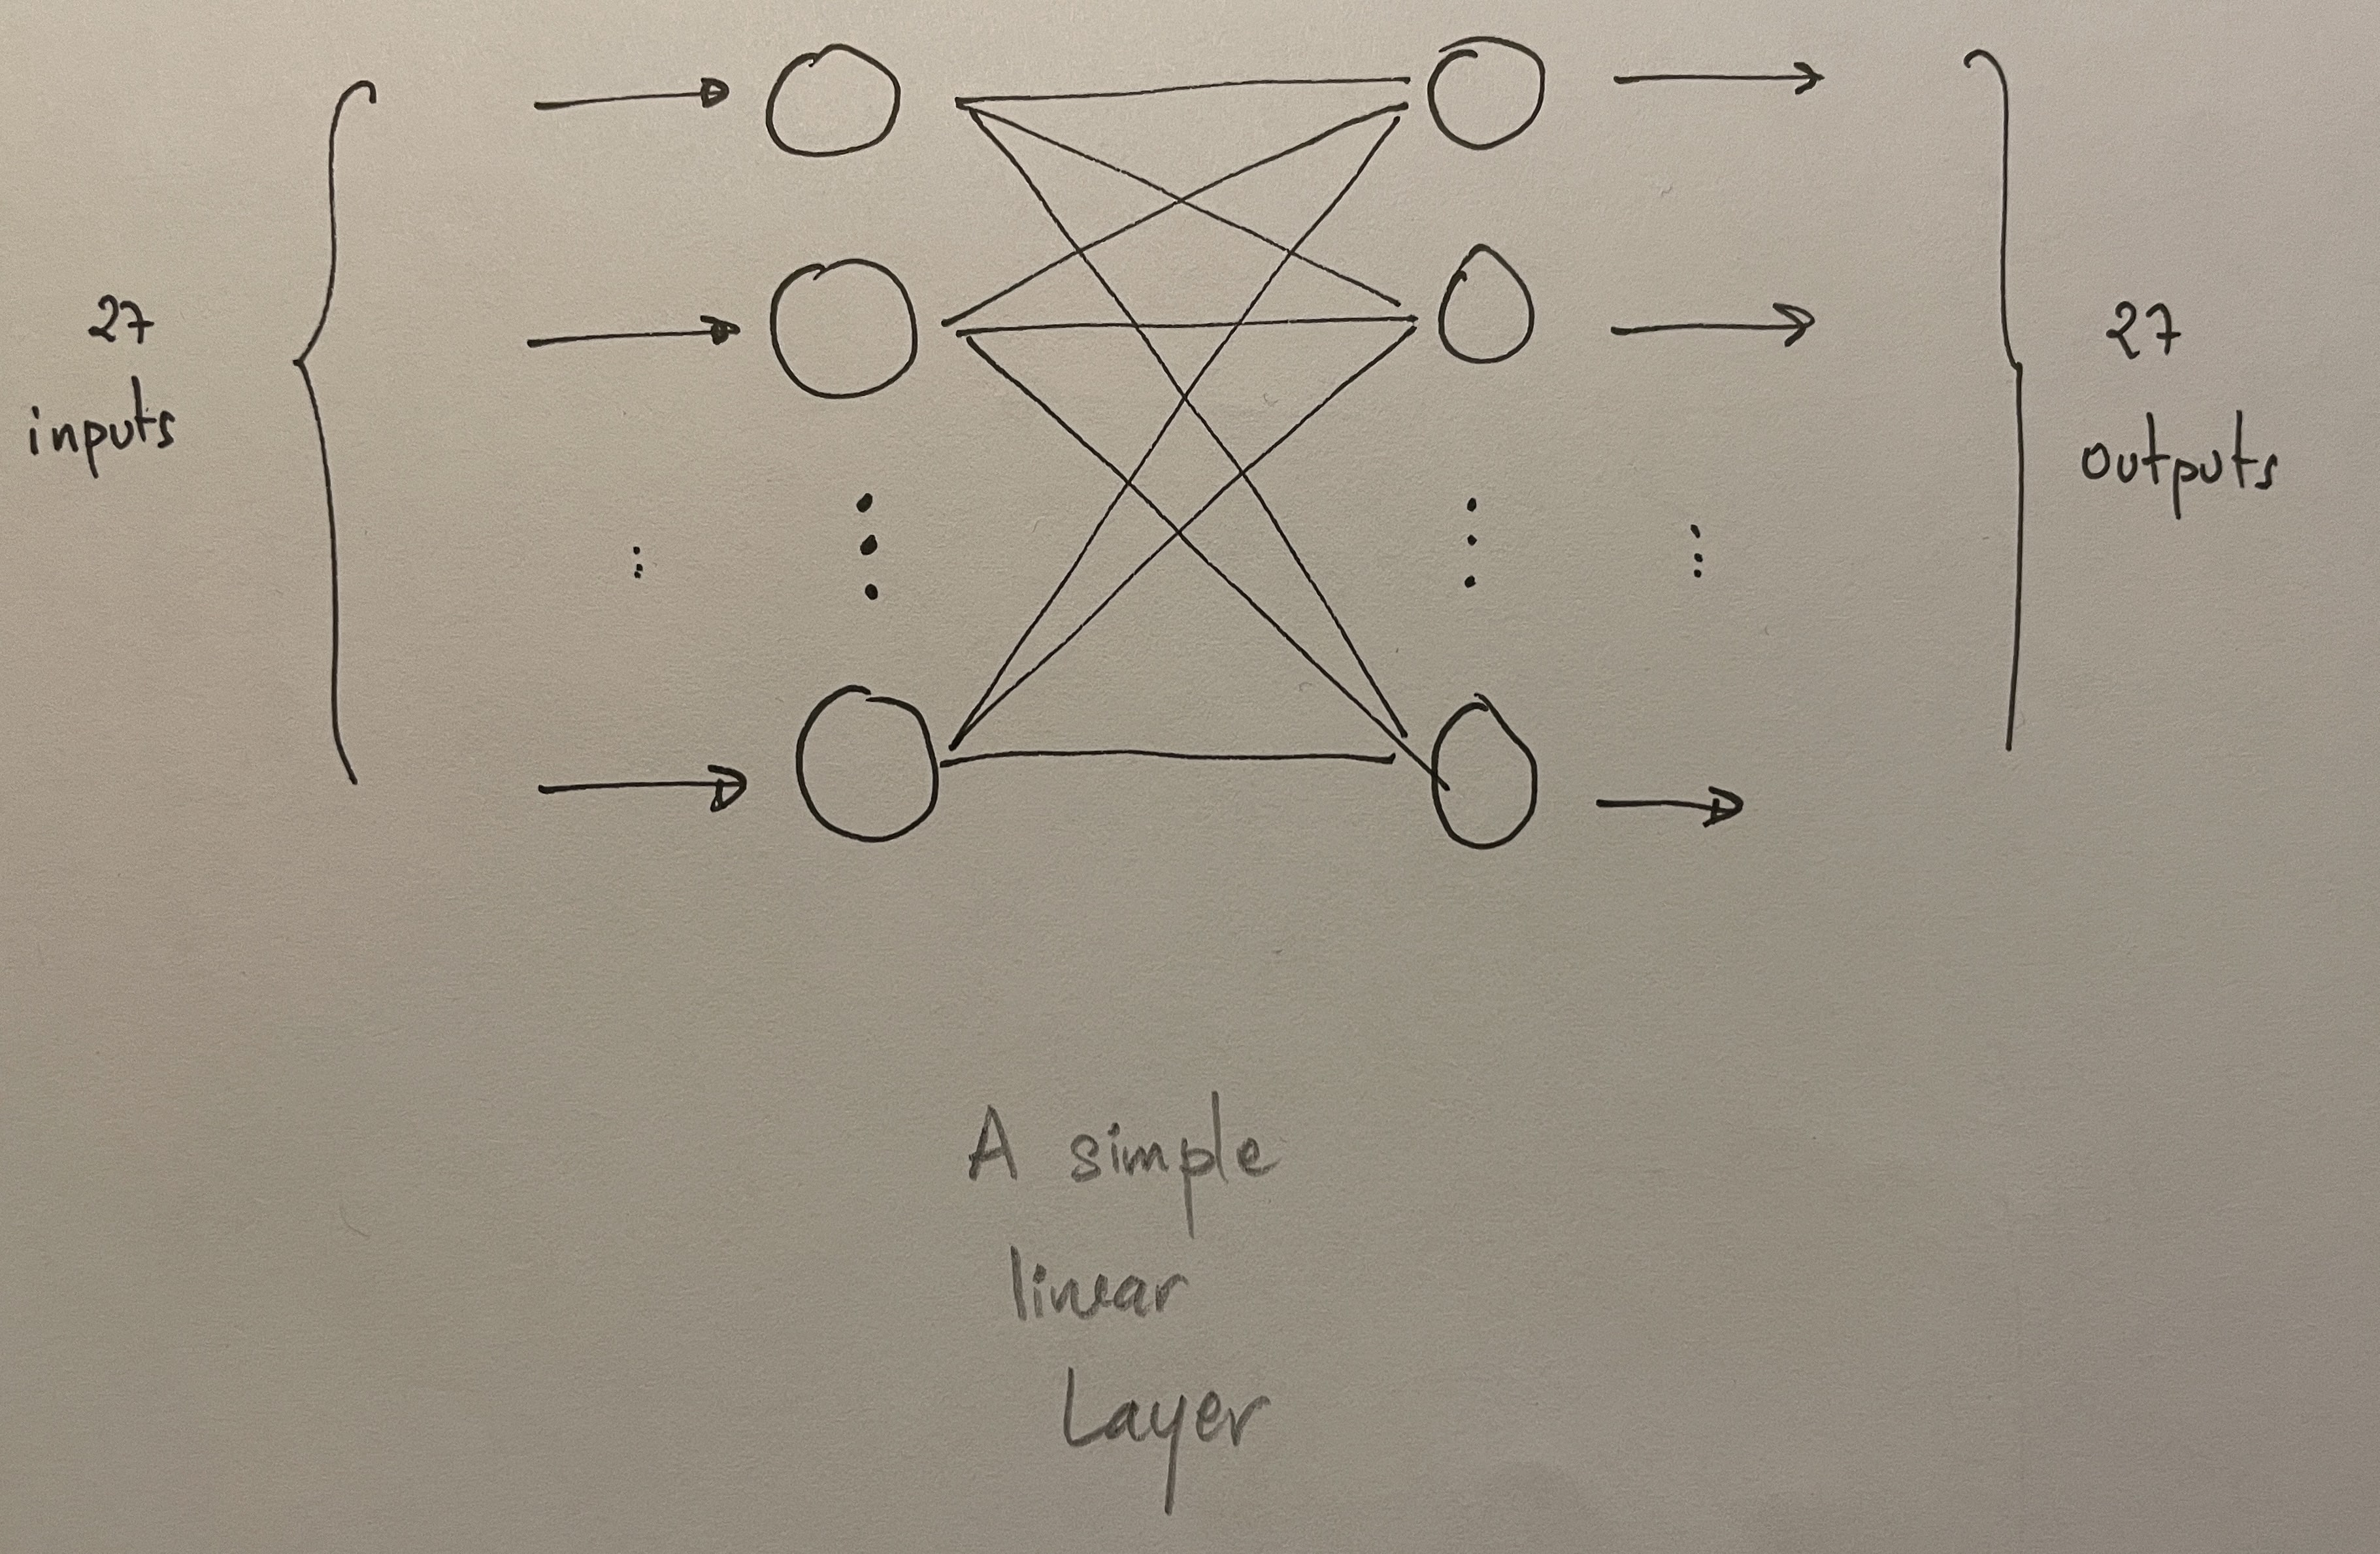 27
inputs
27
outputs
A simple
linear
Layer